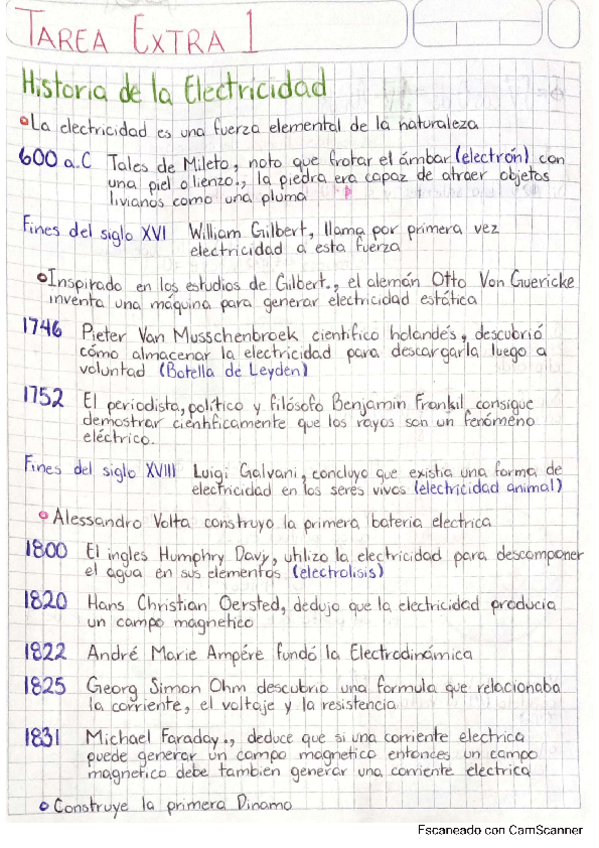 TAREA EXTRA 1
Historia de la Electricidad
La electricidad es una fuerza elemental de la naturaleza
600 a.C Tales de Mileto, noto que frotar el ámbar (electrón) con
una piel o lienzo., la piedra era capaz de atraer objetos
livianos como una pluma
Fines del siglo XVI William Gilbert, llama por primera vez
electricidad a esta fuerza
Inspirado en los estudios de Gilbert., el alemán Otto Von Guericke
inventa una máquina para generar electricidad estática
1746 Pieter Van Musschenbroek cientifico holandés, descubrió
cómo almacenar la electricidad para descargarla luego a
voluntad (Botella de Leyden)
1752 El periodista, político y filósofo Benjamin Frankil consigue
demostrar cientificamente que los rayos son un fenómeno
eléctrico.
Fines del siglo XVIII Luigi Galvani, concluyo que existia una forma de
electricidad en los seres vivos (electricidad animal)
Alessandro Volta construyo la primera bateria electrica
1800 El ingles Humphry Davy, utilizo la electricidad para descomponer
el agua en sus elementos (electrolisis)
1820 Hans Christian Oersted, dedujo que la electricidad producia
un campo magnetico
1822 André Marie Ampére fundó la Electrodinámica
1825 Georg Simon Ohm descubrio una formula que relacionaba
la corriente, el voltaje y la resistencia
1831 Michael Faraday., deduce que si una corriente electrica
puede generar un campo magnetico entonces un campo
magnetico debe tambien generar una corriente electrica
Construye la primera Dinamo
Escaneado con CamScanner